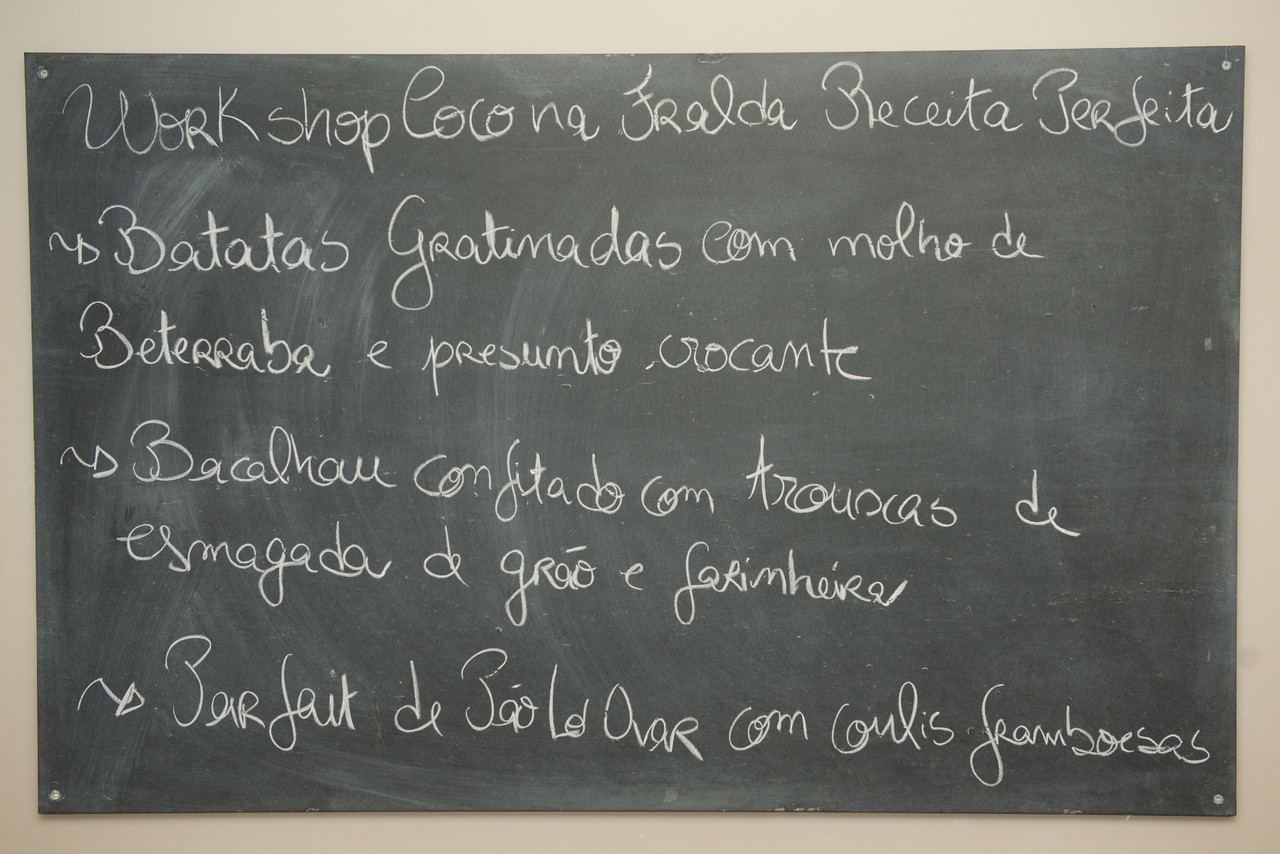 Workshop Coco na Fralda Receita Perfeita
Batatas Gratinadas com molho de
Beterraba e presunto crocante
Bacalhau confitado com trouxas de
esmagada de grão e farinheira
Parfait de Pão Ló Ovar com coulis framboesas